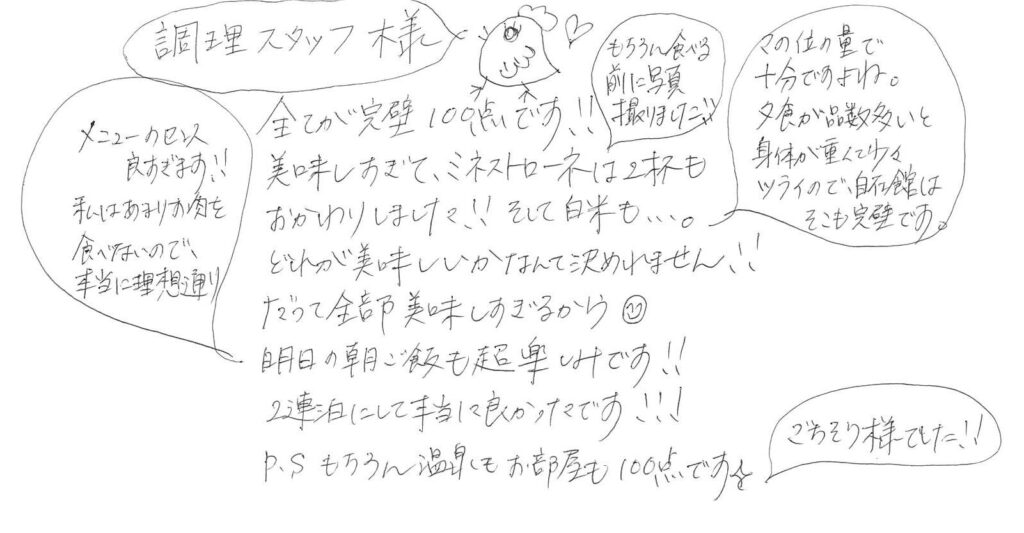 調理スタッフ様
全てが完璧100点です!!
美味しすぎて、ミネストローネは2杯も
おかわりしました!! そして白米も...。
どれが美味しいかなんて決めれません!!
だって全部美味しすぎるから
明日の朝ご飯も超楽しみです!!
2連泊にして本当に良かったです!!!
P.S もちろん温泉もお部屋も100点です
メニューのセンス
良すぎます!!
私はあまりお肉を
食べないので、
本当に理想通り
もちろん食べる
前に写真
撮りました
この位の量で
十分ですよね。
夕食が品数多いと
身体が重くて少々
ツライので、白石館は
そこも完璧です。
ごちそう様でした!!